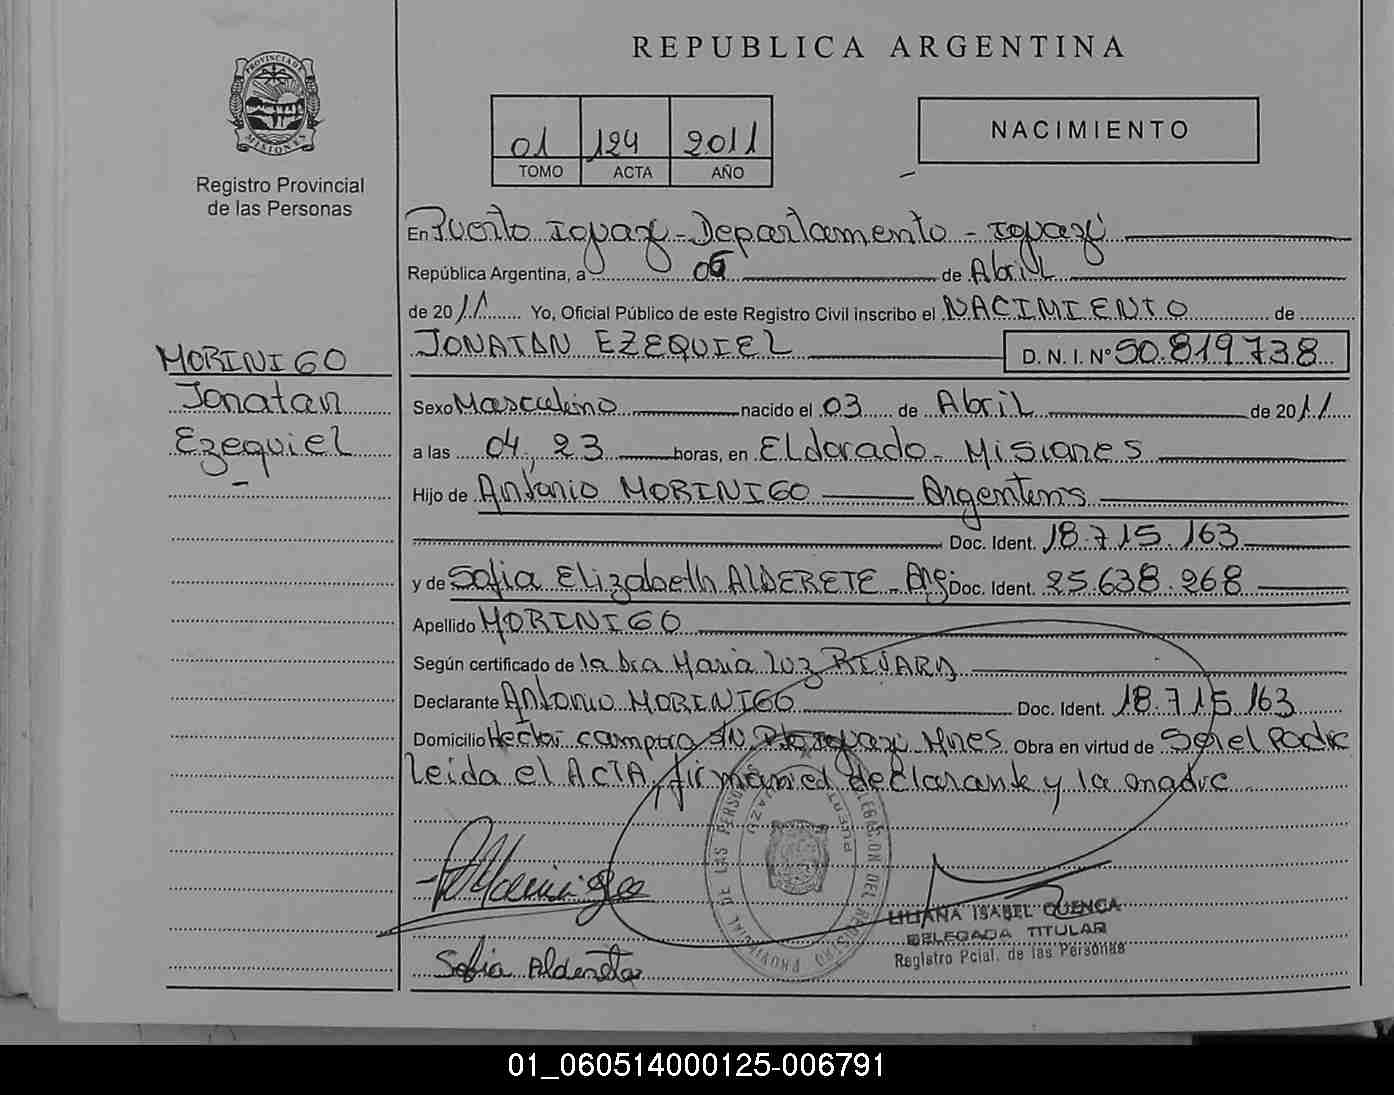 REPUBLICA ARGENTINA
PROVINCIA DE
MISIONES
Registro Provincial
de las Personas
01 124 2011
TOMO ACTA AÑO
NACIMIENTO
En Puerto Iguazú - Departamento - Iguazú
República Argentina, a 06 de Abril
de 2011 Yo, Oficial Público de este Registro Civil inscribo el NACIMIENTO de
JONATAN EZEQUIEL D.N.I. N° 50.819.738
MORINIGO
Jonatan
Ezequiel
Sexo Masculino nacido el 03 de Abril de 2011
a las 04,23 horas, en Eldorado - Misiones
Hijo de Antonio MORINIGO Argentino
Doc. Ident. 18.715.163
y de Sofia Elizabeth ALDERETE - Arg. Doc. Ident. 25.638.268
Apellido MORINIGO
Según certificado de la Dra Maria Luz
Declarante Antonio MORINIGO Doc. Ident. 18.715.163
Domicilio Hector campora S/N Pto Iguazú Mnes Obra en virtud de Ser el Padre
Leida el ACTA, firman el declarante y la madre
DELEGACION DEL REGISTRO PROVINCIAL DE LAS PERSONAS
PUERTO IGUAZU
Sofia Alderete
LILIANA ISABEL CUENCA
DELEGADA TITULAR
Registro Pcial. de las Personas
01_060514000125-006791